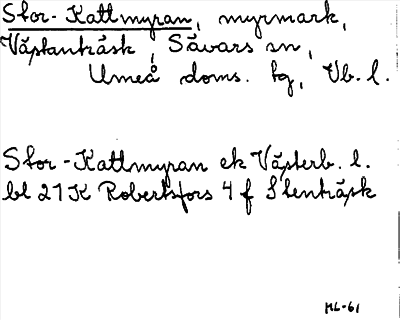 Stor-Kattmyran, myrmark,
Västanträsk, Sävars sn,
Umeå doms. tg, Vb. l.
Stor-Kattmyran ek Västerb. l.
bl 21K Robertsfors 4 f Stenträsk
ML-61